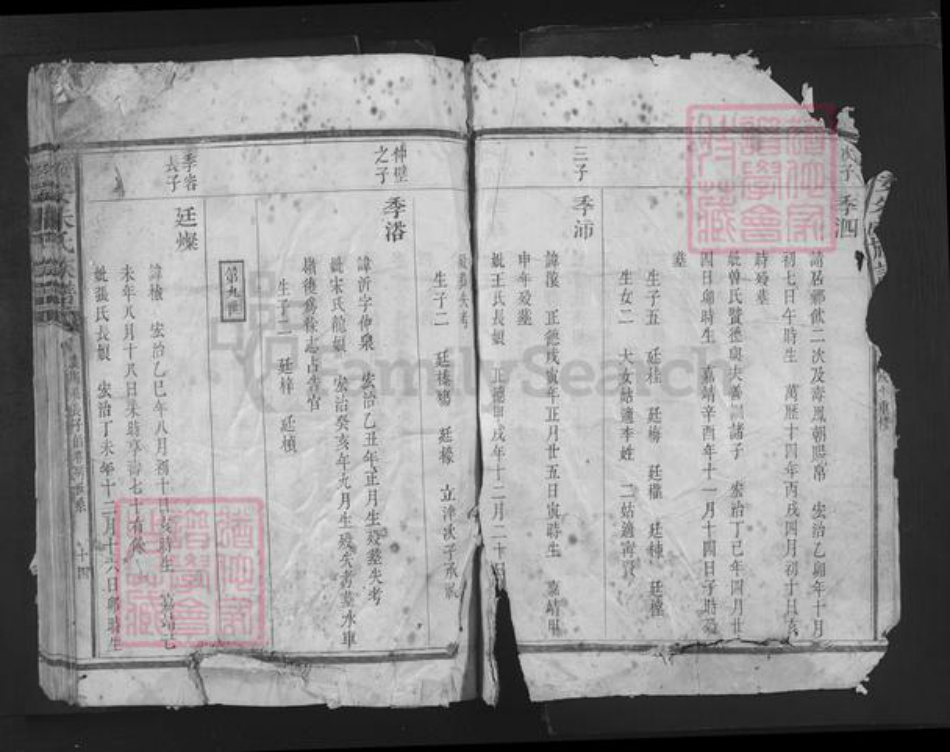 次子
季泗
請居鄉飲二次及壽鳳朝賜帛 宏治乙卯年十月
初七日午時生 萬歷十四年丙戌四月初十日亥
時歿墓
妣曾氏賢德與夫善訓諸子 宏治丁巳年四月廿
四日卯時生 嘉靖辛酉年十一月十四日子時歿
墓
生子五 廷桂 廷梅 廷權 廷棟 廷檀
生女二 大女姑適李姓 二姑適甯賢
三子
季沛
諱 正德戊寅年正月廿五日寅時生 嘉靖
申年歿墓
妣王氏長娘 正德甲戌年十二月二十
墓失考
生子二 廷榛 廷椽 立津次子承
仲璧之子
季浴
諱沂字仲泉 宏治乙丑年正月生歿墓失考
妣宋氏龍娘 宏治癸亥年九月生歿失考墓水車
嶺德 志占
生子二 廷梓 廷楨
第九世
季岩長子
廷燦
諱檢 宏治乙巳年八月初十日亥時生 嘉靖己
未年八月十八日未時享壽七十有
妣張氏長娘 宏治丁未年十二月十六日卯時生
十四
FamilySearch